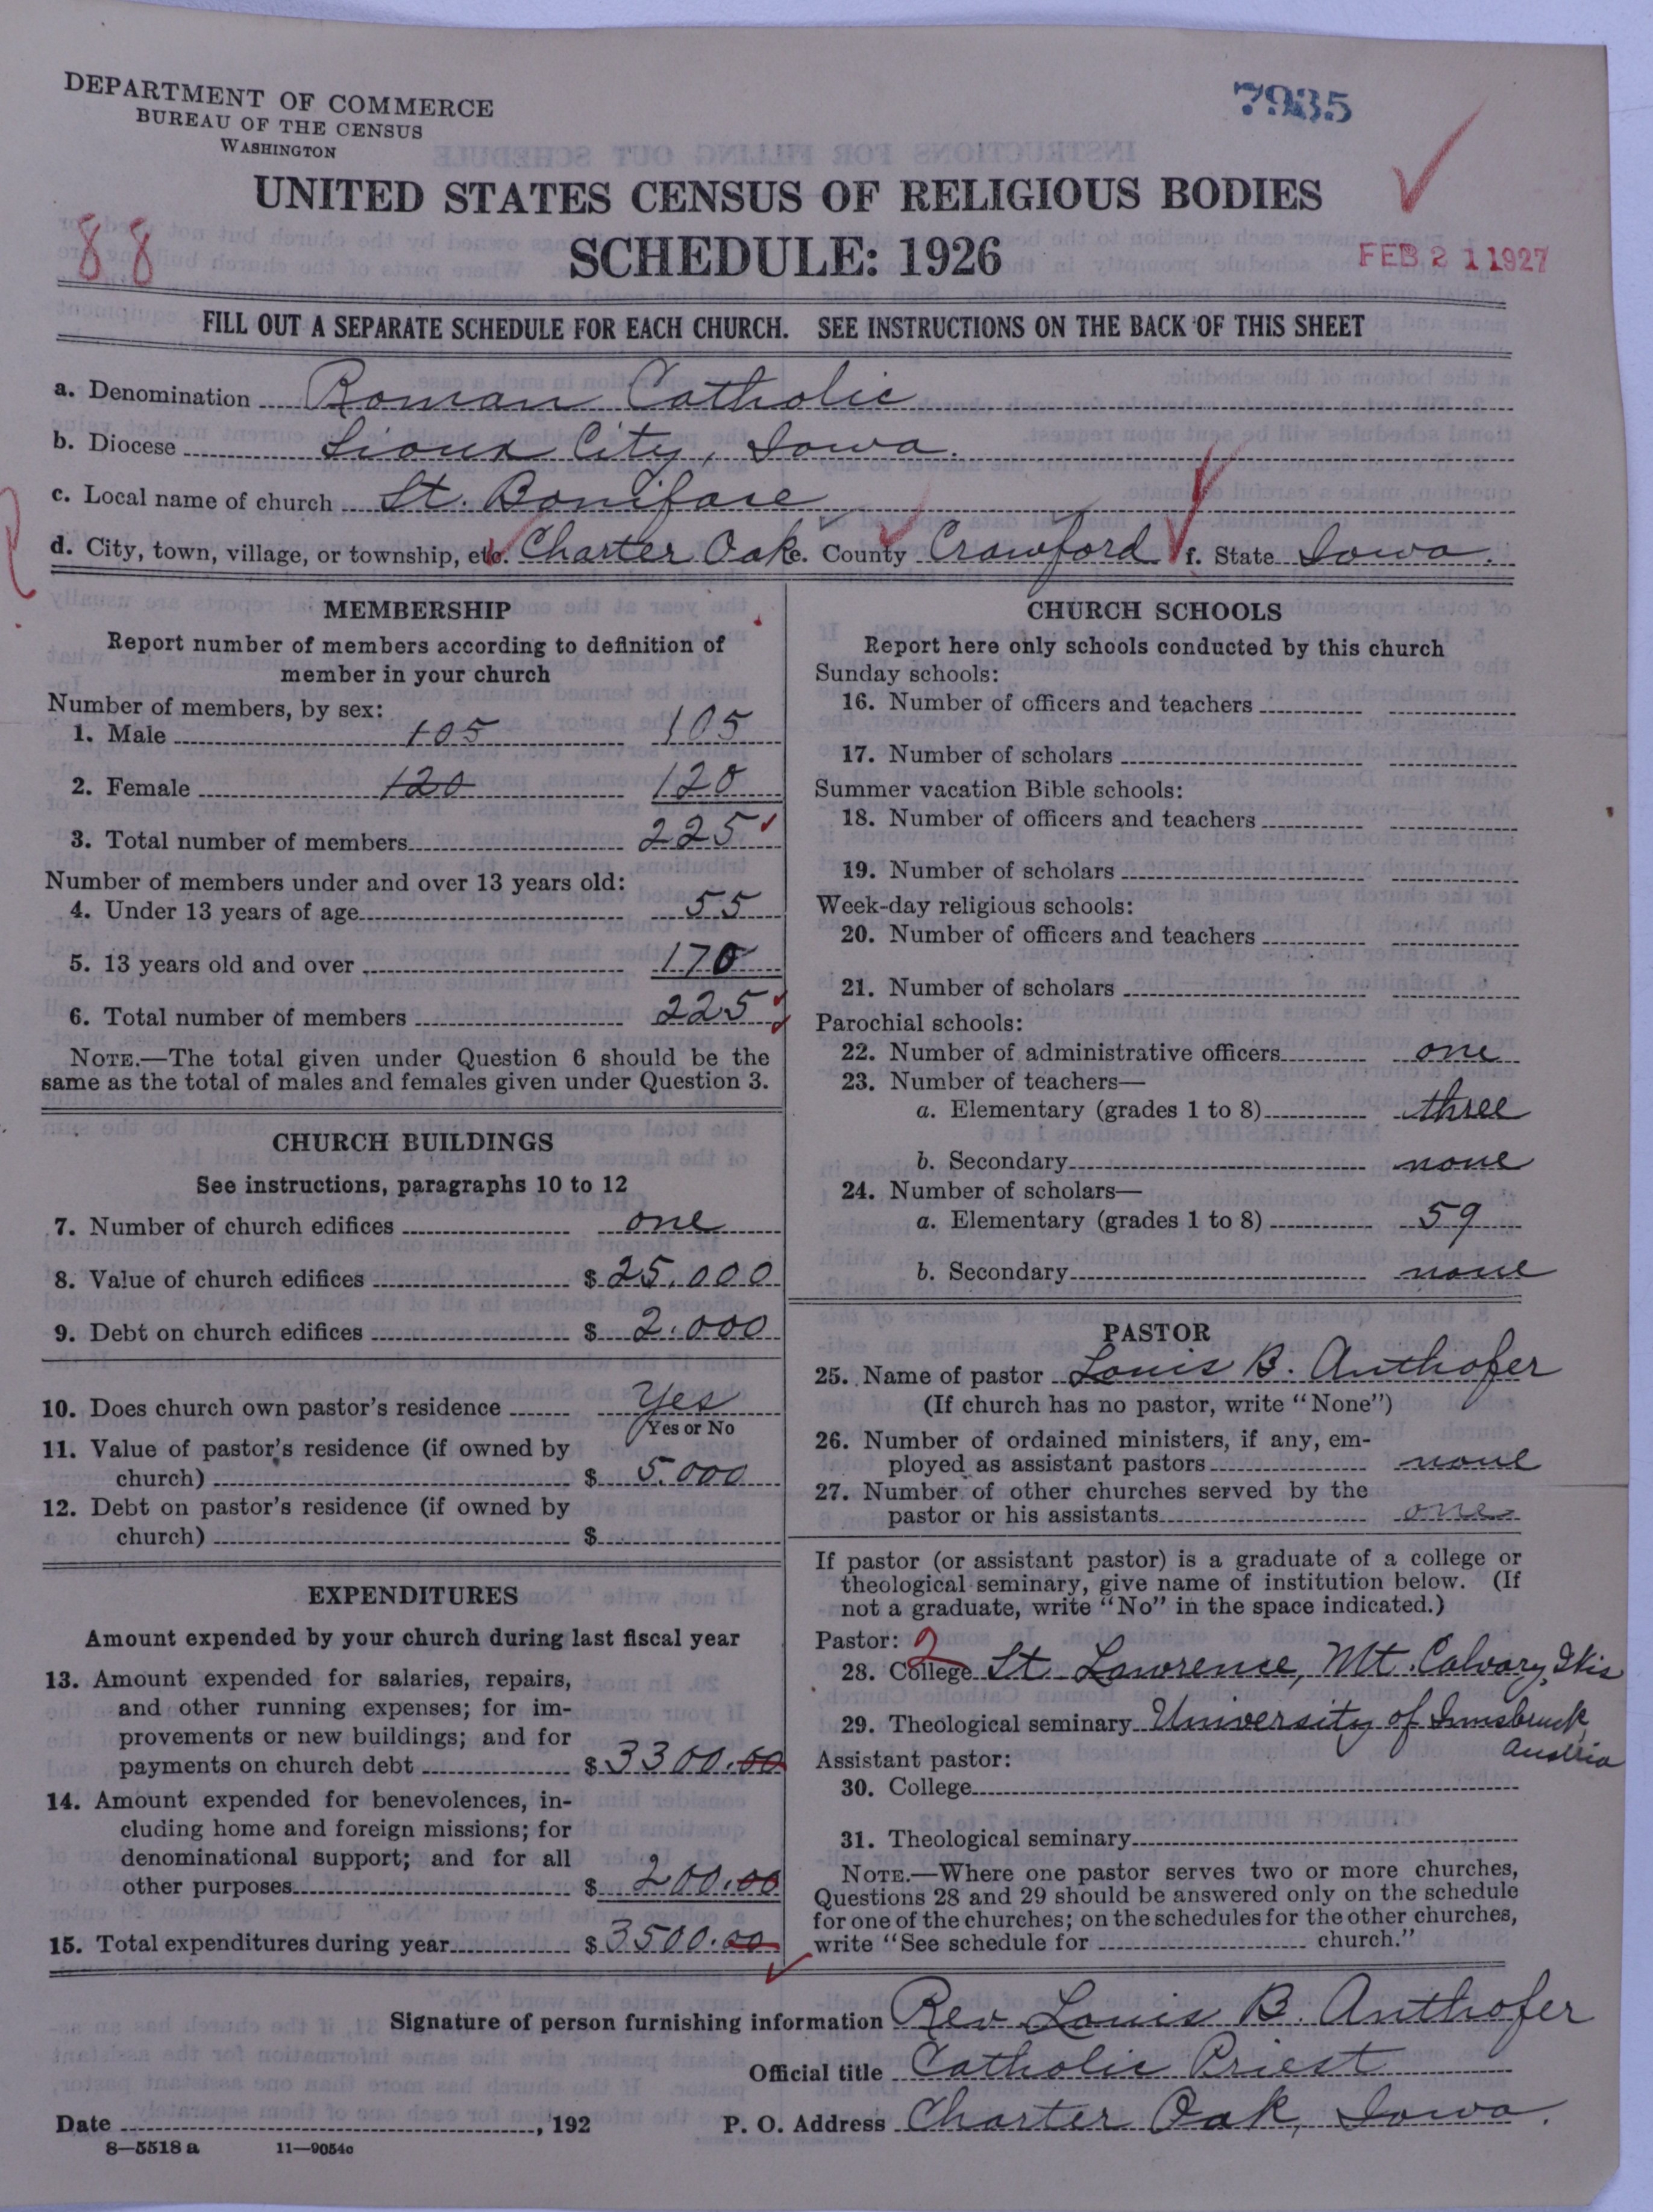 DEPARTMENT OF COMMERCE
BUREAU OF THE CENSUS
WASHINGTON
7935
UNITED STATES CENSUS OF RELIGIOUS BODIES
SCHEDULE: 1926
88
FEB 21 1927
FILL OUT A SEPARATE SCHEDULE FOR EACH CHURCH. SEE INSTRUCTIONS ON THE BACK OF THIS SHEET
a. Denomination Roman Catholic
b. Diocese Sioux City, Iowa.
c. Local name of church St. Boniface
d. City, town, village, or township, etc. Charter Oak e. County Crawford f. State Iowa.
MEMBERSHIP
Report number of members according to definition of
member in your church
Number of members, by sex:
1. Male 105 105
2. Female 120 120
3. Total number of members 225
Number of members under and over 13 years old:
4. Under 13 years of age 55
5. 13 years old and over 170
6. Total number of members 225
NOTE.—The total given under Question 6 should be the
same as the total of males and females given under Question 3.
CHURCH BUILDINGS
See instructions, paragraphs 10 to 12
7. Number of church edifices one
8. Value of church edifices $ 25.000
9. Debt on church edifices $ 2.000
10. Does church own pastor's residence Yes
Yes or No
11. Value of pastor's residence (if owned by
church) $ 5.000
12. Debt on pastor's residence (if owned by
church) $
EXPENDITURES
Amount expended by your church during last fiscal year
13. Amount expended for salaries, repairs,
and other running expenses; for im-
provements or new buildings; and for
payments on church debt $ 3300.00
14. Amount expended for benevolences, in-
cluding home and foreign missions; for
denominational support; and for all
other purposes $ 200.00
15. Total expenditures during year $ 3500.00
CHURCH SCHOOLS
Report here only schools conducted by this church
Sunday schools:
16. Number of officers and teachers
17. Number of scholars
Summer vacation Bible schools:
18. Number of officers and teachers
19. Number of scholars
Week-day religious schools:
20. Number of officers and teachers
21. Number of scholars
Parochial schools:
22. Number of administrative officers one
23. Number of teachers—
a. Elementary (grades 1 to 8) three
b. Secondary none
24. Number of scholars—
a. Elementary (grades 1 to 8) 59
b. Secondary none
PASTOR
25. Name of pastor Louis B. Anthofer
(If church has no pastor, write "None")
26. Number of ordained ministers, if any, em-
ployed as assistant pastors none
27. Number of other churches served by the
pastor or his assistants one
If pastor (or assistant pastor) is a graduate of a college or
theological seminary, give name of institution below. (If
not a graduate, write "No" in the space indicated.)
Pastor: 2
28. College St Lawrence, Mt. Calvary, Wis
29. Theological seminary University of Innsbruck,
Austria
Assistant pastor:
30. College
31. Theological seminary
NOTE.—Where one pastor serves two or more churches,
Questions 28 and 29 should be answered only on the schedule
for one of the churches; on the schedules for the other churches,
write "See schedule for church."
Signature of person furnishing information Rev Louis B. Anthofer
Official title Catholic Priest
Date , 192 P. O. Address Charter Oak, Iowa.
8—5518 a 11—9054c